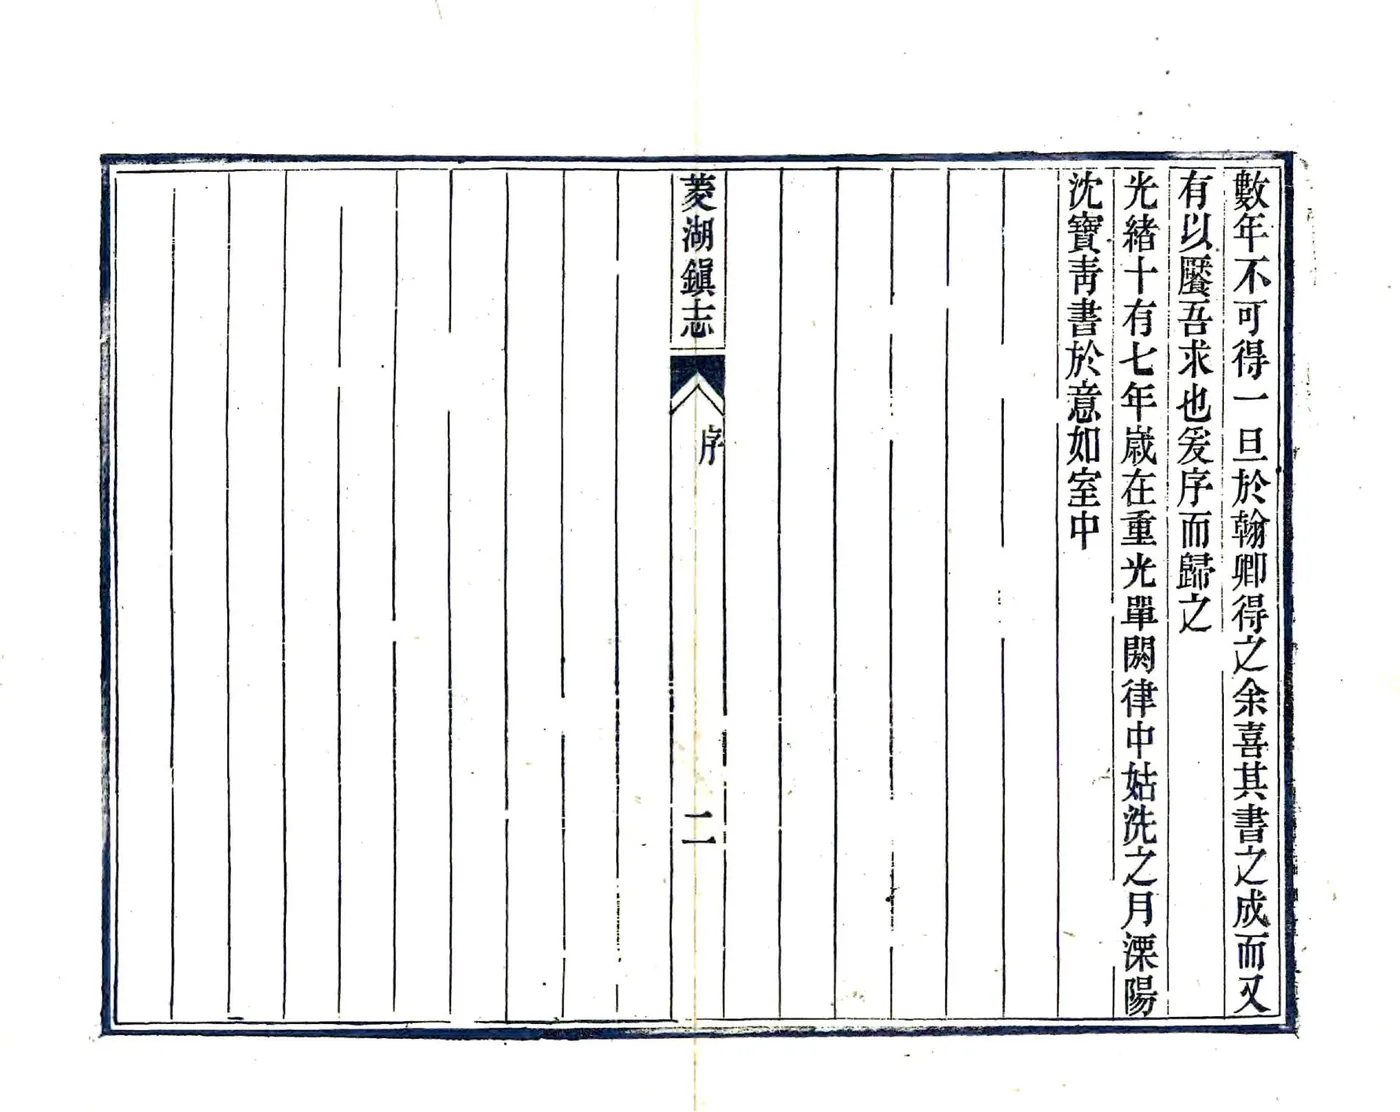 數年不可得一旦於翰卿得之余喜其書之成而又
有以饜吾求也爰序而歸之
光緒十有七年歲在重光單閼律中姑洗之月溧陽
沈寶青書於意如室中
菱湖鎭志
序
二